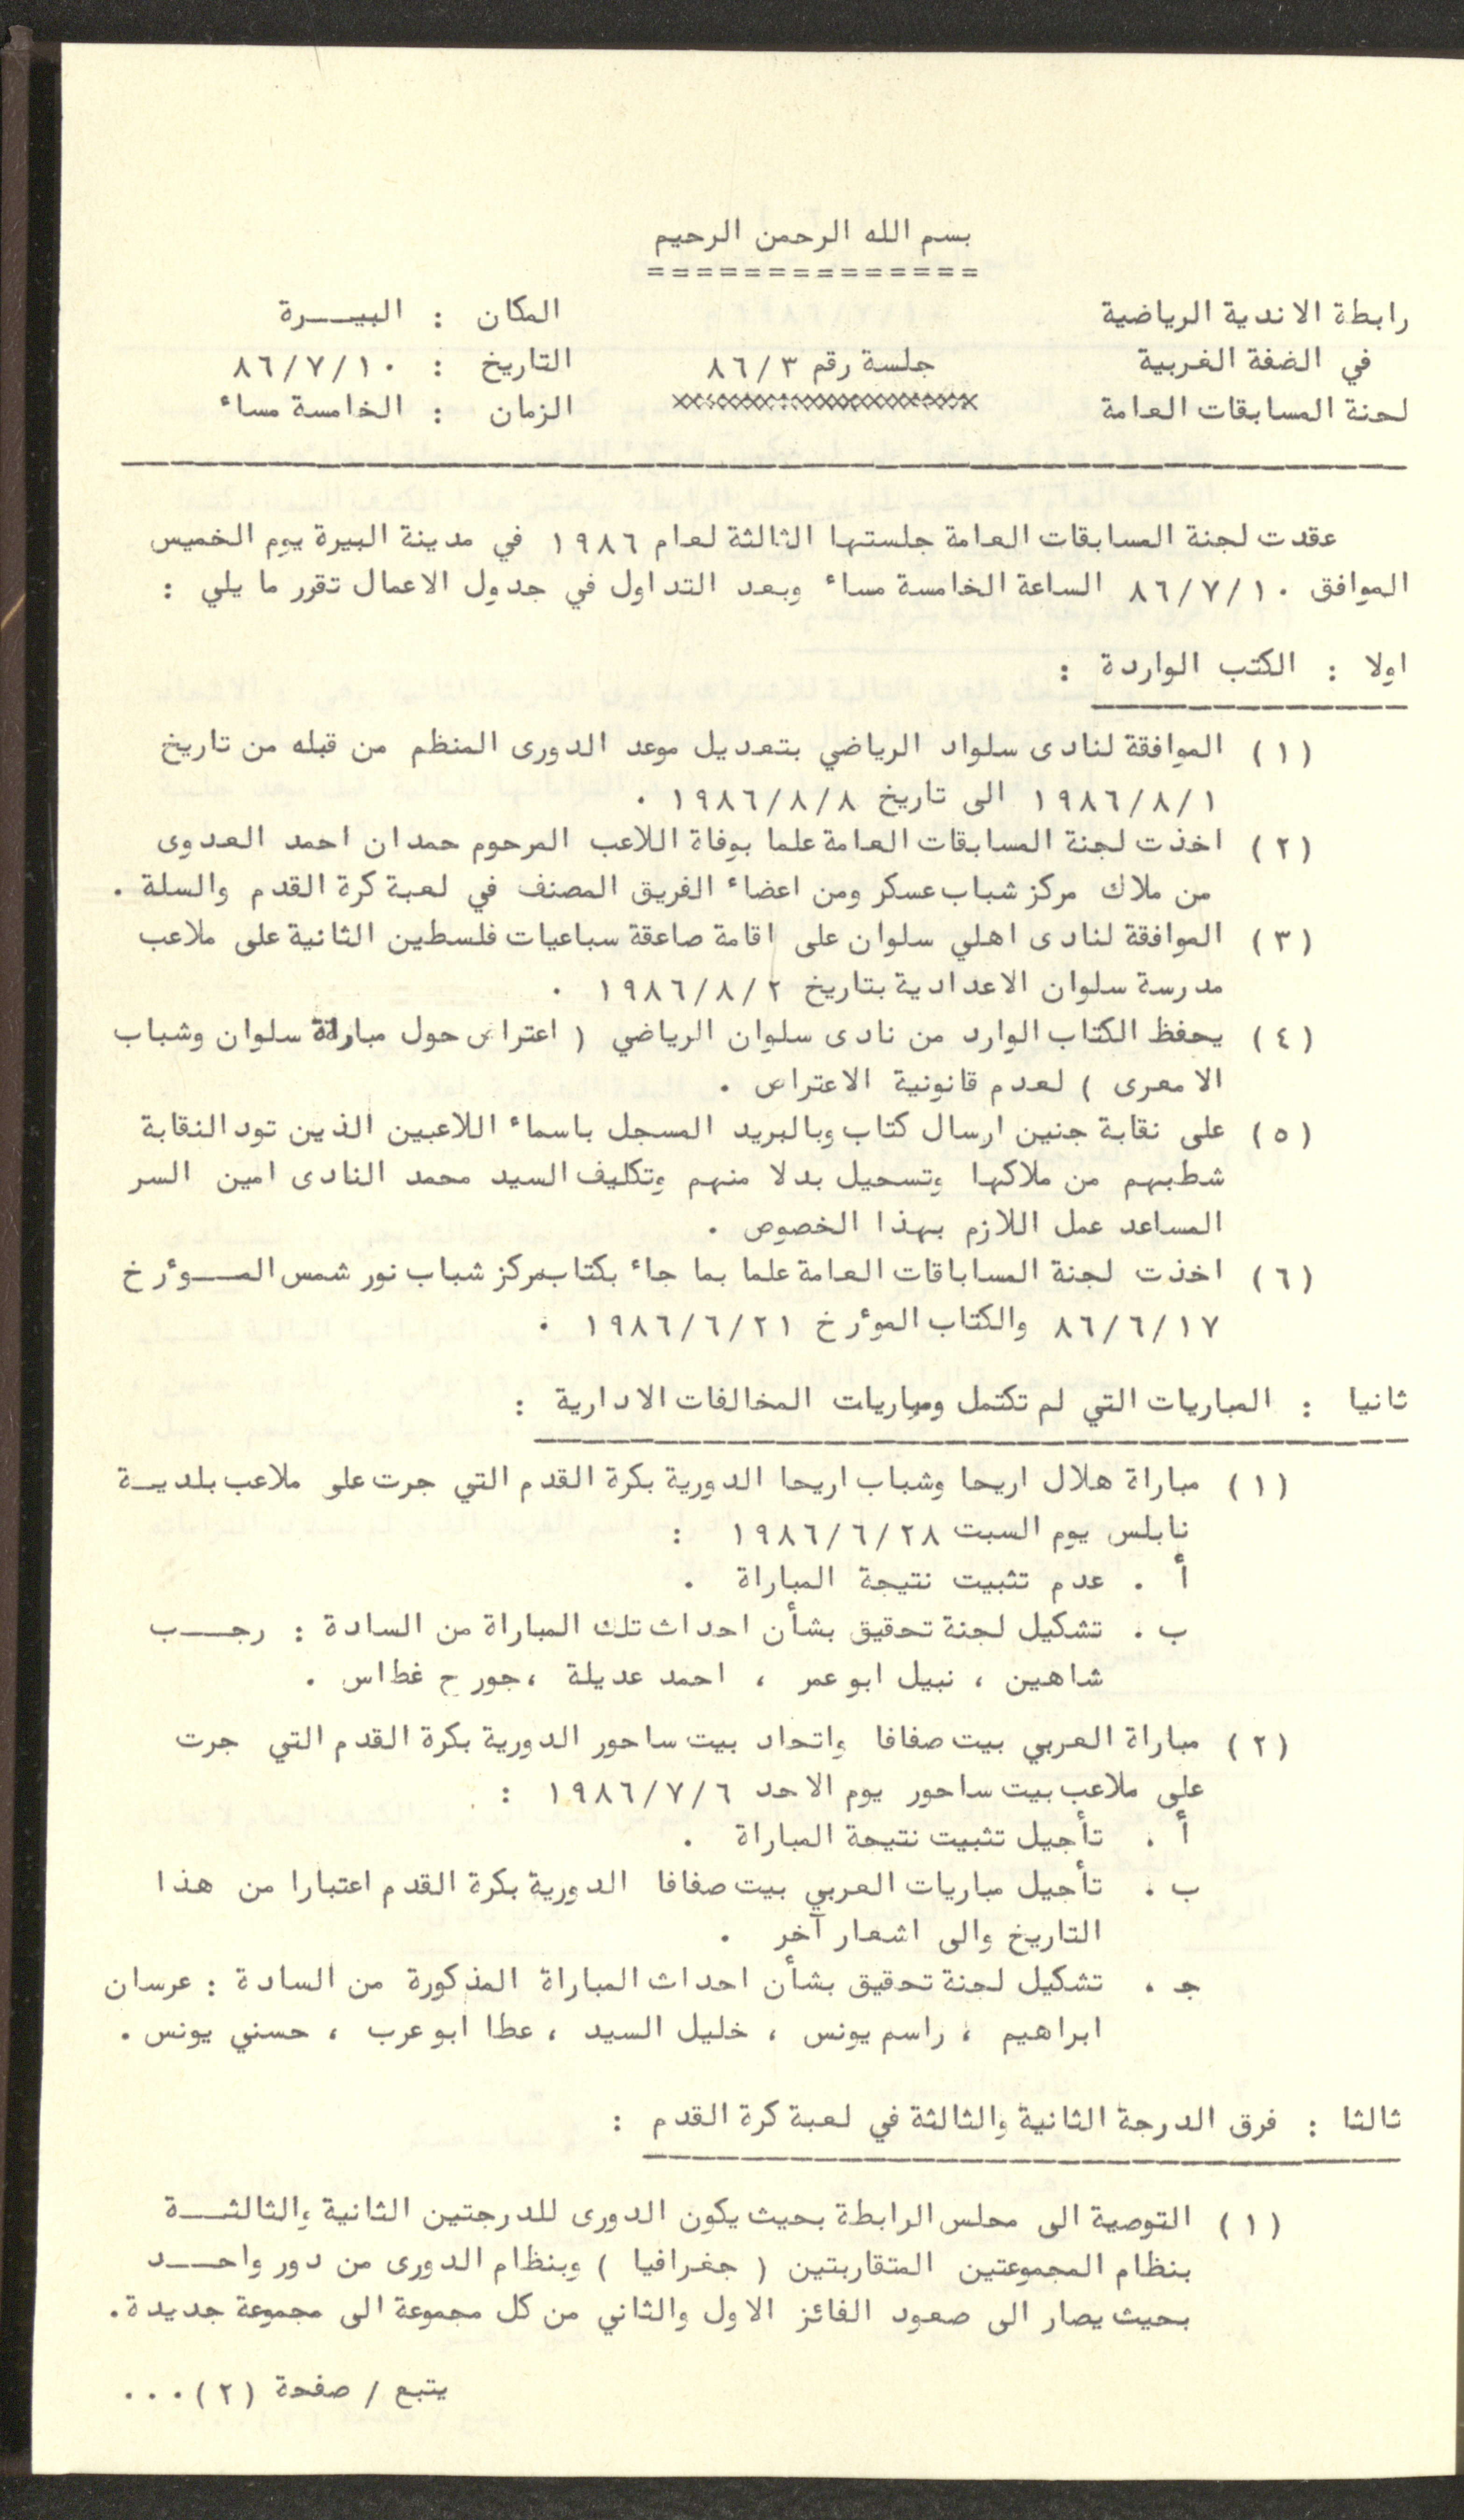 بسم الله الرحمن الرحيم
==============
رابطة الاندية الرياضية
في الضفة الغربية
لجنة المسابقات العامة
جلسة رقم ٨٦/٣
المكان : البيــرة
التاريخ : ٨٦/٧/١٠
الزمان : الخامسة مساء
عقدت لجنة المسابقات العامة جلستها الثالثة لعام ١٩٨٦ في مدينة البيرة يوم الخميس
الموافق ٨٦/٧/١٠ الساعة الخامسة مساء وبعد التداول في جدول الاعمال تقرر ما يلي :
اولا : الكتب الواردة :
(١) الموافقة لنادى سلواد الرياضي بتعديل موعد الدورى المنظم من قبله من تاريخ
١٩٨٦/٨/١ الى تاريخ ١٩٨٦/٨/٨ .
(٢) اخذت لجنة المسابقات العامة علما بوفاة اللاعب المرحوم حمدان احمد العدوى
من ملاك مركز شباب عسكر ومن اعضاء الفريق المصنف في لعبة كرة القدم والسلة .
(٣) الموافقة لنادى اهلي سلوان على اقامة صاعقة سباعيات فلسطين الثانية على ملاعب
مدرسة سلوان الاعدادية بتاريخ ١٩٨٦/٨/٢ .
(٤) يحفظ الكتاب الوارد من نادى سلوان الرياضي ( اعتراض حول مباراة سلوان وشباب
الامعرى ) لعدم قانونية الاعتراض .
(٥) على نقابة جنين ارسال كتاب وبالبريد المسجل باسماء اللاعبين الذين تود النقابة
شطبهم من ملاكها وتسجيل بدلا منهم وتكليف السيد محمد النادى امين السر
المساعد عمل اللازم بهذا الخصوص .
(٦) اخذت لجنة المساباقات العامة علما بما جاء بكتاب مركز شباب نور شمس المــؤرخ
٨٦/٦/١٧ والكتاب المؤرخ ١٩٨٦/٦/٢١ .
ثانيا : المباريات التي لم تكتمل ومباريات المخالفات الادارية :
(١) مباراة هلال اريحا وشباب اريحا الدورية بكرة القدم التي جرت على ملاعب بلديـة
نابلس يوم السبت ١٩٨٦/٦/٢٨ :
أ . عدم تثبيت نتيجة المباراة .
ب . تشكيل لجنة تحقيق بشأن احداث تلك المباراة من السادة : رجــب
شاهين ، نبيل ابو عمر ، احمد عديلة ، جورج غطاس .
(٢) مباراة العربي بيت صفافا واتحاد بيت ساحور الدورية بكرة القدم التي جرت
على ملاعب بيت ساحور يوم الاحد ١٩٨٦/٧/٦ :
أ . تأجيل تثبيت نتيجة المباراة .
ب . تأجيل مباريات العربي بيت صفافا الدورية بكرة القدم اعتبارا من هذا
التاريخ والى اشعار آخر .
جـ . تشكيل لجنة تحقيق بشأن احداث المباراة المذكورة من السادة : عرسان
ابراهيم ، راسم يونس ، خليل السيد ، عطا ابو عرب ، حسني يونس .
ثالثا : فرق الدرجة الثانية والثالثة في لعبة كرة القدم :
(١) التوصية الى مجلس الرابطة بحيث يكون الدورى للدرجتين الثانية والثالثــة
بنظام المجموعتين المتقاربتين ( جغرافيا ) وبنظام الدورى من دور واحــد
بحيث يصار الى صعود الفائز الاول والثاني من كل مجموعة الى مجموعة جديدة .
يتبع / صفحة (٢) ...